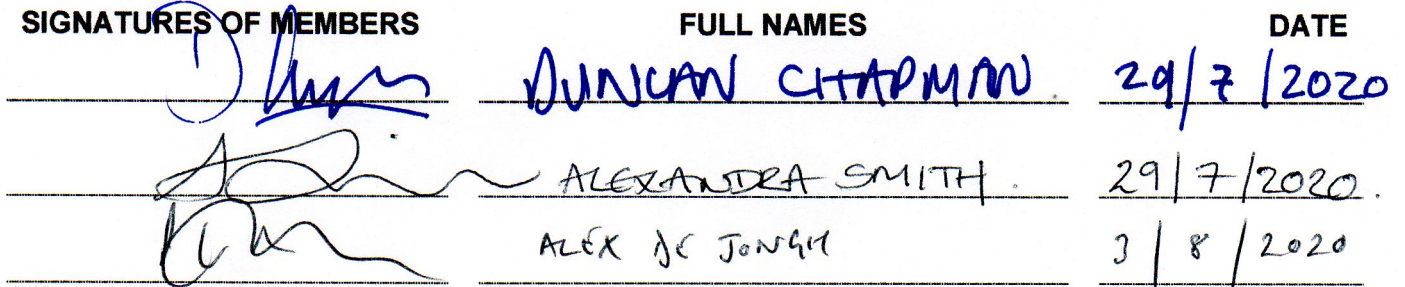 SIGNATURES OF MEMBERS FULL NAMES DATE
DUNCAN CHAPMAN 29/7/2020
ALEXANDRA SMITH. 29/7/2020.
ALEX DE JONGH 3/8/2020